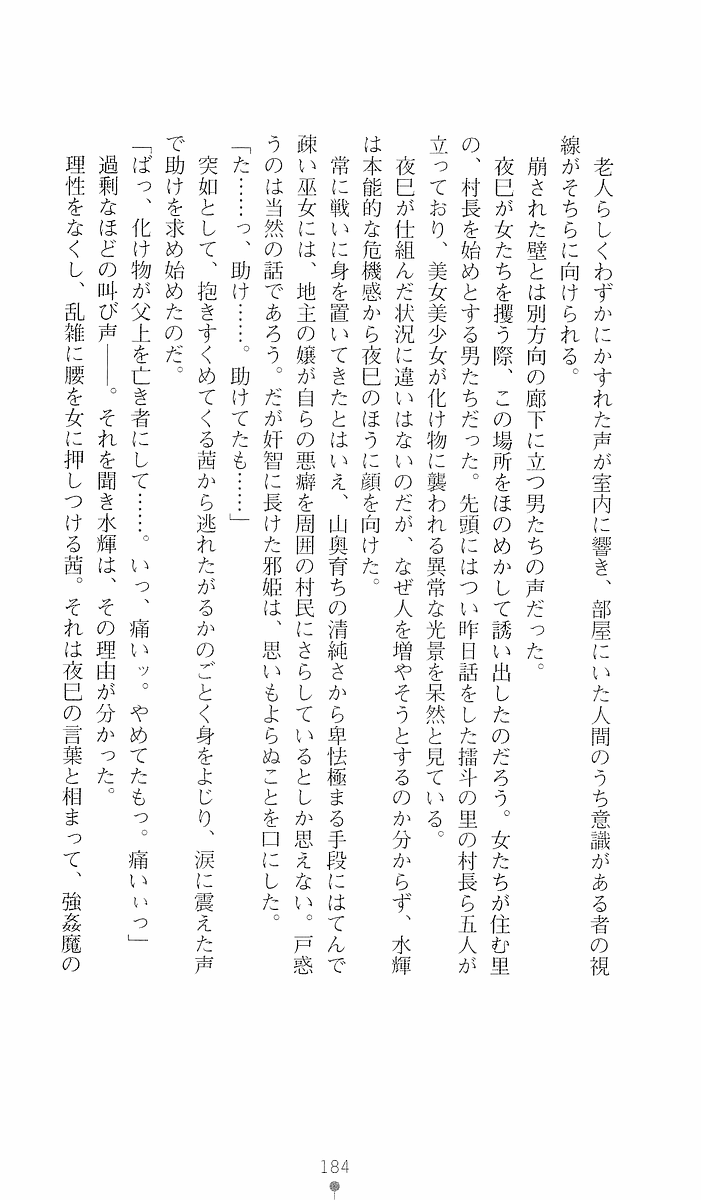 老人らしくわずかにかすれた声が室内に響き、部屋にいた人間のうち意識がある者の視
線がそちらに向けられる。
　崩された壁とは別方向の廊下に立つ男たちの声だった。
　夜巳が女たちを攫う際、この場所をほのめかして誘い出したのだろう。女たちが住む里
の、村長を始めとする男たちだった。先頭にはつい昨日話をした擂斗の里の村長ら五人が
立っており、美女美少女が化け物に襲われる異常な光景を呆然と見ている。
　夜巳が仕組んだ状況に違いはないのだが、なぜ人を増やそうとするのか分からず、水輝
は本能的な危機感から夜巳のほうに顔を向けた。
　常に戦いに身を置いてきたとはいえ、山奥育ちの清純さから卑怯極まる手段にはてんで
疎い巫女には、地主の嬢が自らの悪癖を周囲の村民にさらしているとしか思えない。戸惑
うのは当然の話であろう。だが奸智に長けた邪姫は、思いもよらぬことを口にした。
「た……っ、助け……。助けてたも……」
　突如として、抱きすくめてくる茜から逃れたがるかのごとく身をよじり、涙に震えた声
で助けを求め始めたのだ。
「ばっ、化け物が父上を亡き者にして……。いっ、痛いッ。やめてたもっ。痛いぃっ」
　過剰なほどの叫び声――。それを聞き水輝は、その理由が分かった。
　理性をなくし、乱雑に腰を女に押しつける茜。それは夜巳の言葉と相まって、強姦魔の
184